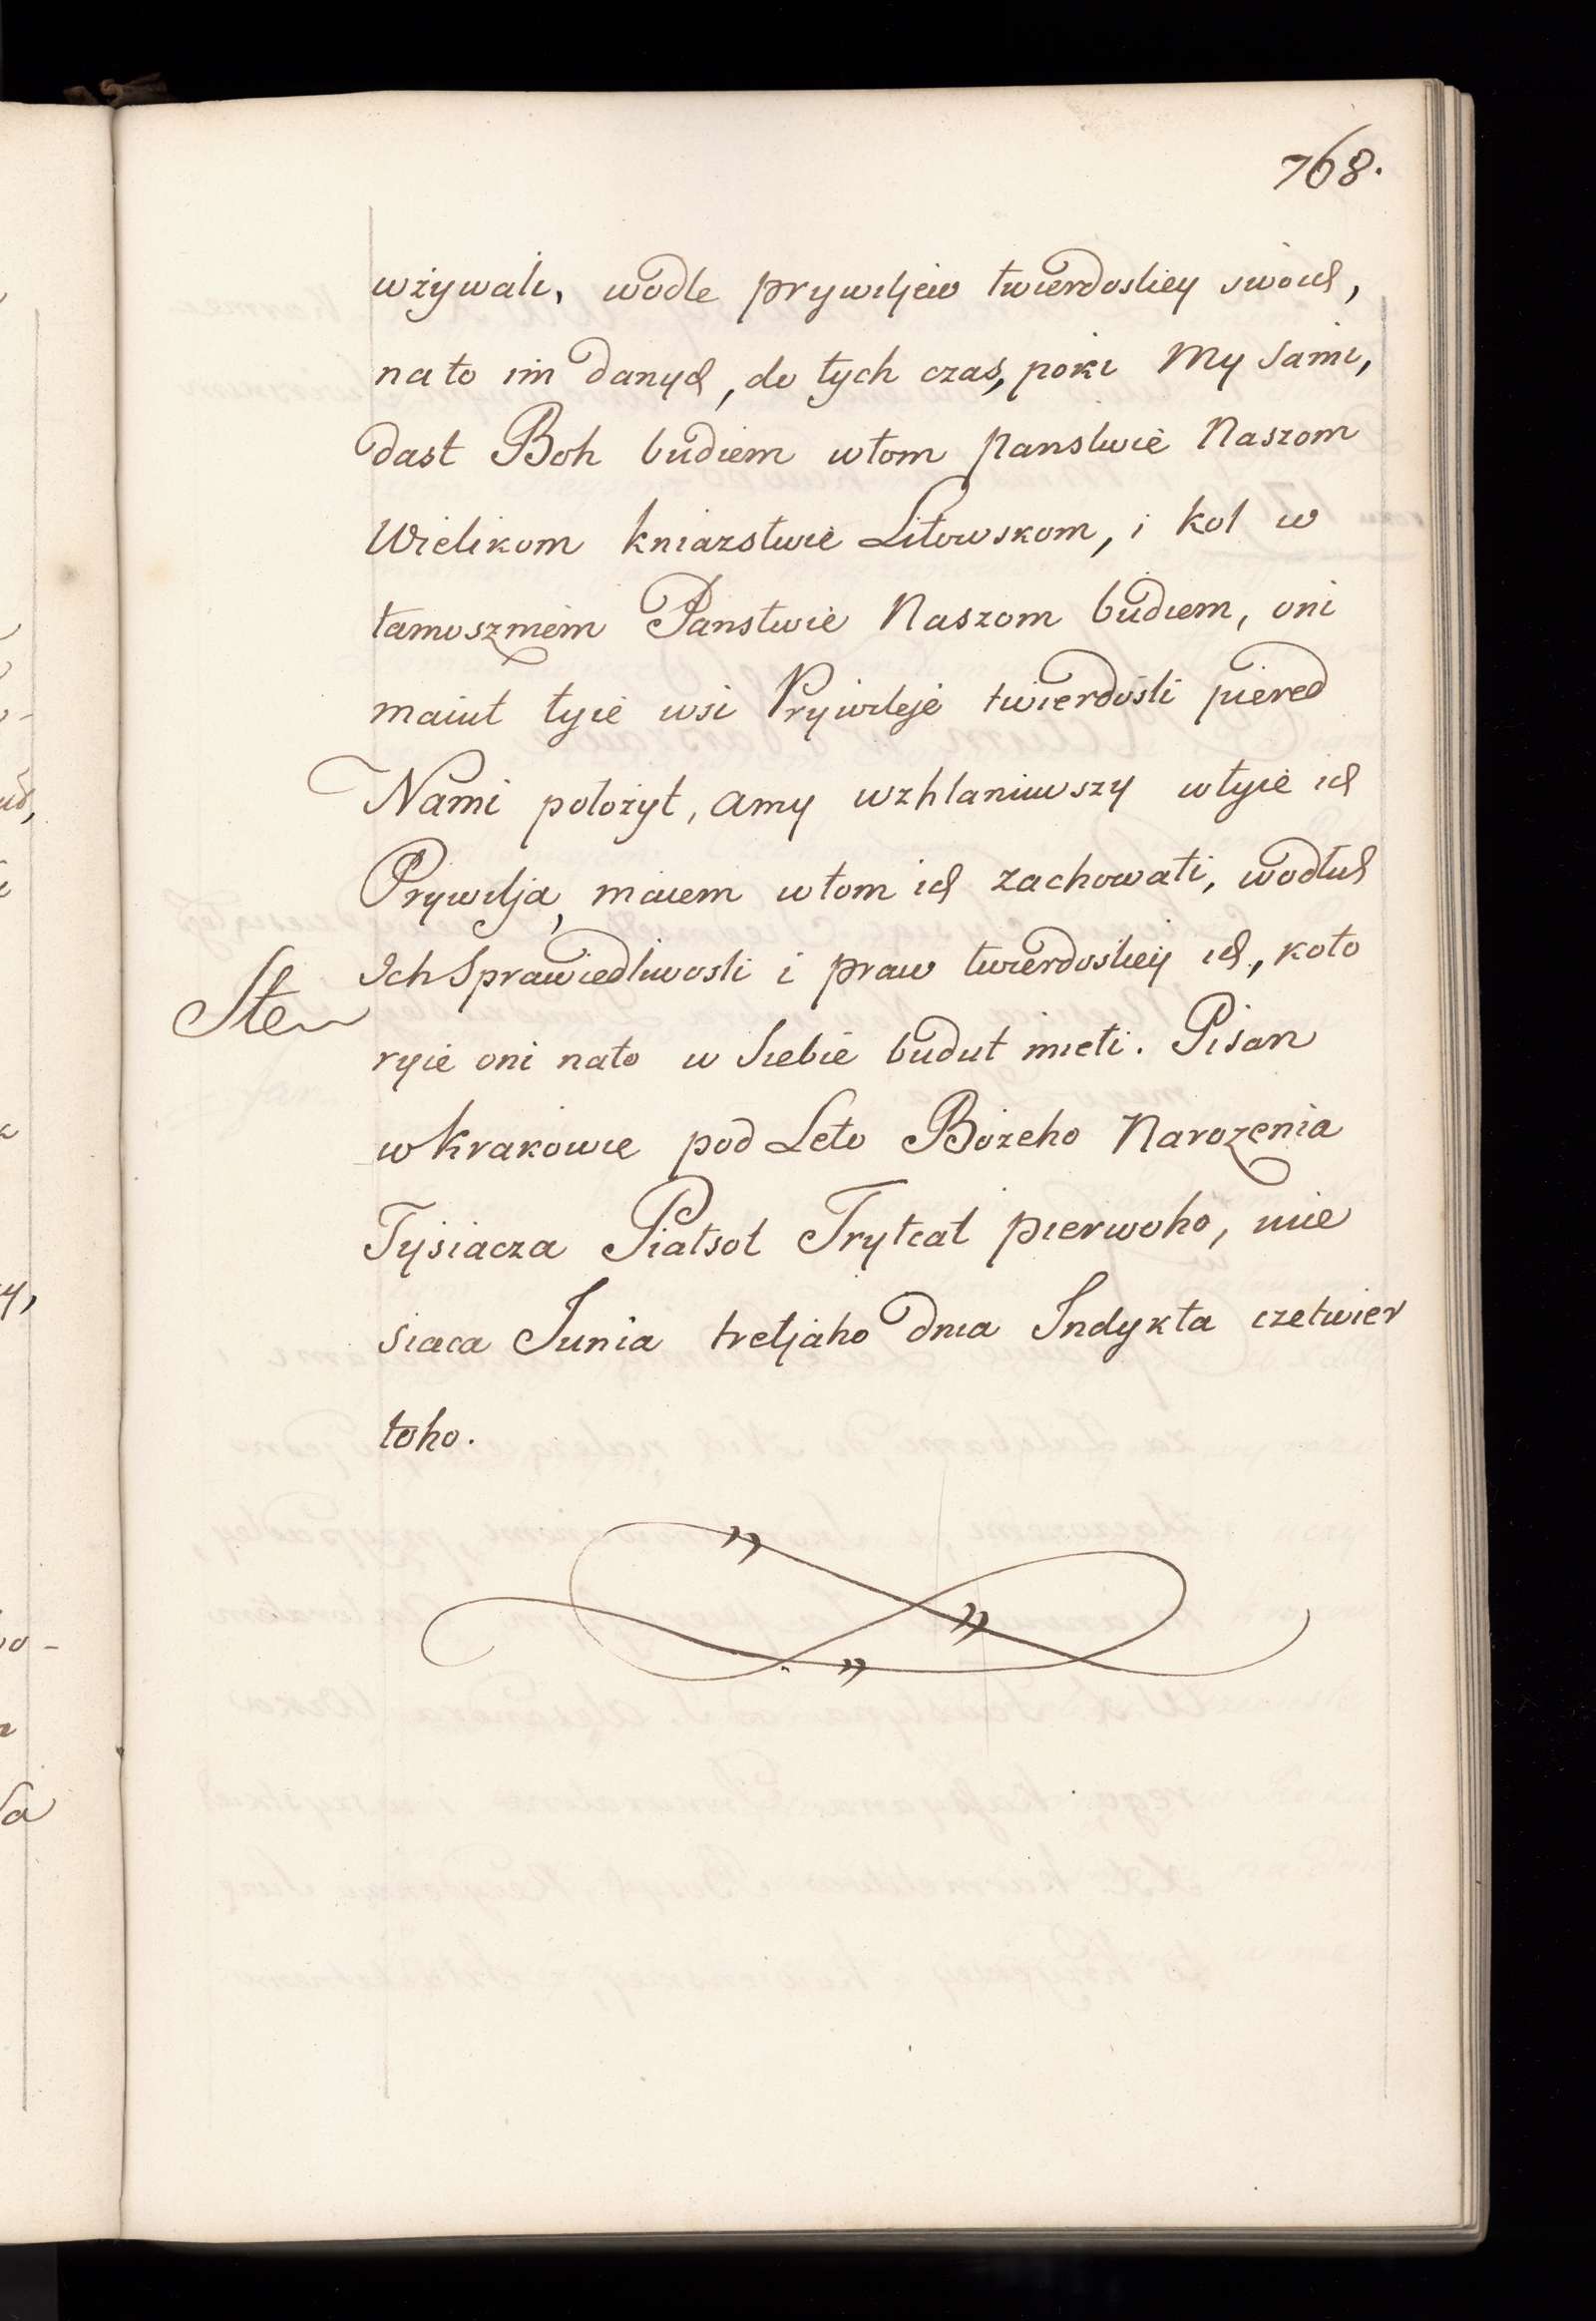 768.
wżywali, wodle prywiljew twierdostiey swoich,
na to im danych, do tych czas, poki My Sami,
dast Boh budiem wtom Panstwie Naszom
Wielikom kniazstwie Litowskom, i kol w
tamoszniem Panstwie Naszom budiem, oni
maiut tyie wsi Prywileje twierdosti pered
Nami położyt, amy wzhlaniuwszy wtyie ich
Prywilja, maiem wtom ich zachowati, wodluh
Ich Sprawiedliwosti i praw twierdostiey ich, koto
ryie oni nato w Siebie budut mieti. Pisan
w Krakowie pod Leto Bożeho Narożenia
Tysiacza Piatsot Trytcat pierwoho, mie
siaca Junia tretjaho dnia Indykta czetwier
toho.